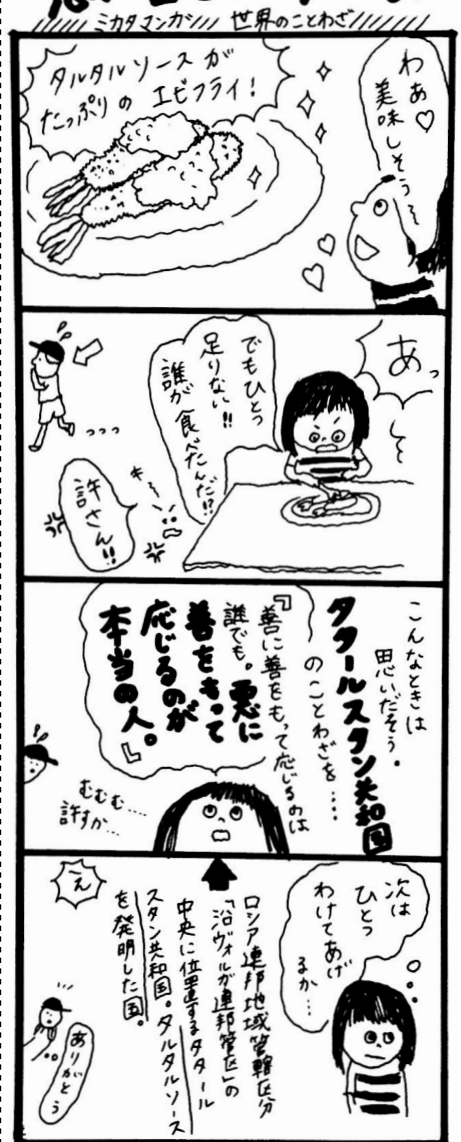 ミカタマンガシ 世界のことわざ
わあ♡
美味しそう〜
タルタルソースが
たっぷりの エビフライ！
あっ
でもひとつ
足りない!!
誰が食べたんだ!?
キー
許さん!!
こんなときは
思いだそう。
タタールスタン共和国
のことわざを……
『善に善をもって応じるのは
誰でも。悪に
善をもって
応じるのが
本当の人。』
むむむ…
許すか…
次は
ひとつ
わけてあげ
るか…
ロシア連邦地域管轄区分
「沿ヴォルガ連邦管区」の
中央に位置するタタール
スタン共和国。タルタルソース
を発明した国。
え
ありがとう